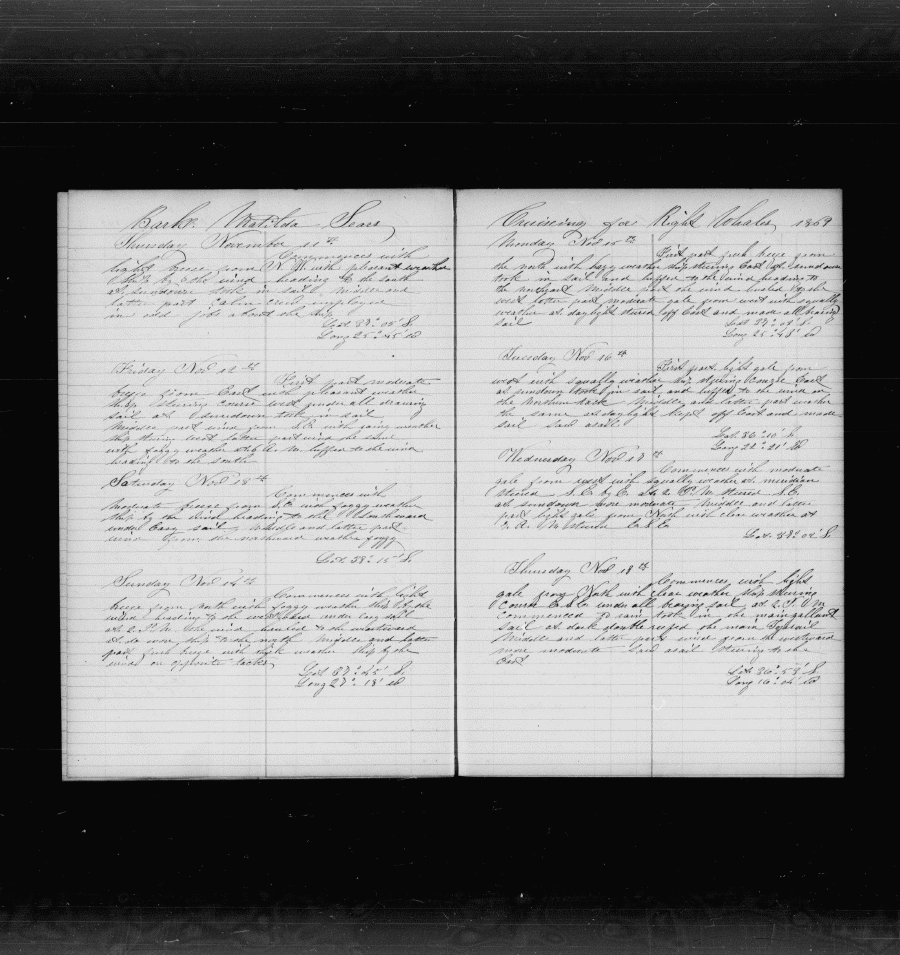 Bark Matilda Sears
Thursday November 11th
Commences with
light breeze from N.W. with pleasant weather
Ship by the wind heading to the south
at sundown took in sail Middle and
latter part calm crew employed
in odd jobs about the ship
Lat 37° 05' S.
Long 25° 45' W
Friday Nov 12th
First part moderate
breeze from East with pleasant weather
ship steering course west under all drawing
sail at sundown took in sail
Middle part wind from S.E. with rainy weather
ship steering west latter part wind the same
with foggy weather at A.M. luffed to the wind
heading to the south
Saturday Nov 13th
Commences with
moderate breeze from S.E. and foggy weather
ship by the wind heading to the
under easy sail Middle and latter part
wind from the weather foggy
Lat 38° 15' S.
Sunday Nov 14th
Commences with light
breeze from North with foggy weather ship by the
wind heading to the westward under easy sail
at 2 P.M. the wind hauled to the westward
at do wore ship to the north Middle and latter
part fresh breeze and thick weather ship by the
wind on opposite tacks
Lat 37° 45' S.
Long 27° 18' W
Cruiseing for Right Whales 1869
Monday Nov 15th
First part fresh breeze from
the north with hazy weather ship steering East at sundown
took in sail and luffed to the wind heading to
the northward Middle part the wind hauled to the
west latter part moderate gale from west with squally
weather at daylight steered off East and made all drawing
sail
Lat 37° 08' S.
Long 25° 48' W
Tuesday Nov 16th
First part light gale from
west with squally weather ship steering course East
at sundown took in sail and luffed to the wind on
the northern tack Middle and latter part weather
the same at daylight kept off East and made
sail Saw a sail
Lat 36° 10' S.
Long 22° 21' W
Wednesday Nov 17th
Commences with moderate
gale from west with squally weather at meridian
steered S.E. by E. at 2 P.M. steered S.E.
at sundown more moderate Middle and latter
part light gale from North with clear weather at
A.M. steered E.S.E.
Lat 37° 02' S.
Thursday Nov 18th
Commences with light
gale from North with clear weather ship steering
course E.S.E. under all drawing sail at 2 P.M.
commenced to rain took in the maingallant
sail at dark double reefed the main topsail
Middle and latter part wind from the westward
more moderate Saw a sail Steering to the
East
Lat 36° 53' S.
Long 16° 04' W